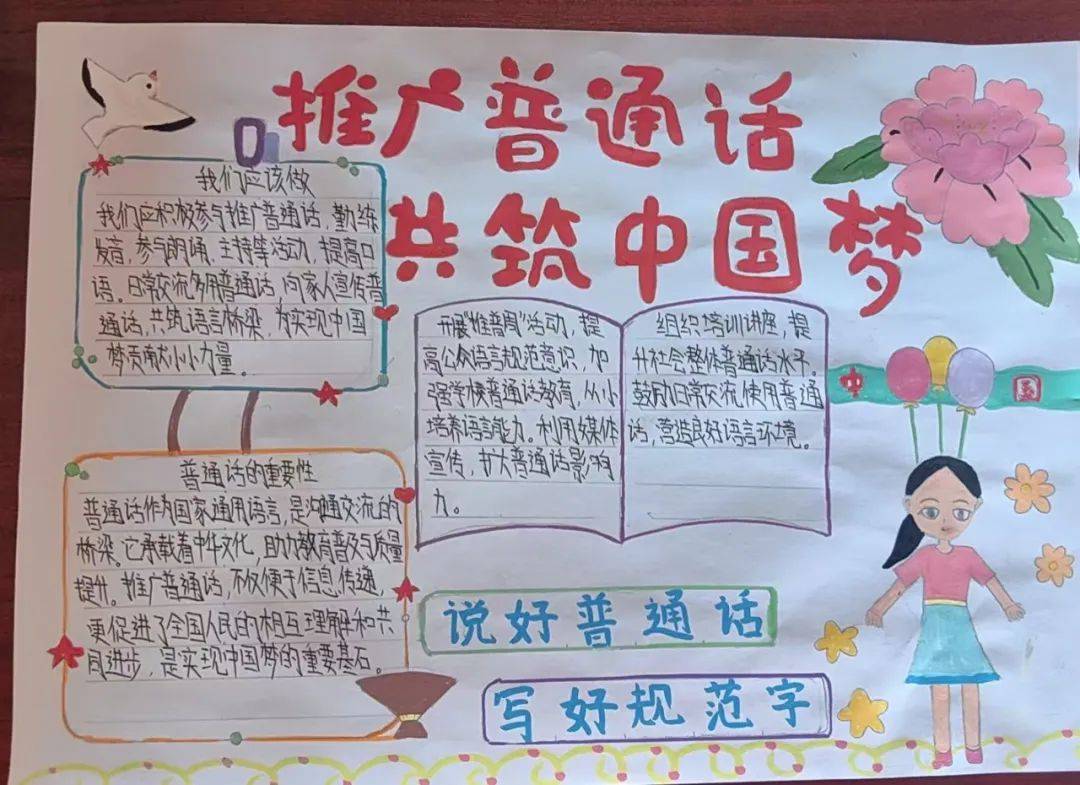 推广普通话
共筑中国梦
我们应该做
我们应积极参与推广普通话，勤练
发音，参与朗诵、主持等活动，提高口
语。日常交流多用普通话，向家人宣传普
通话，共筑语言桥梁，为实现中国
梦贡献小小力量。
开展“推普周”活动，提
高公众语言规范意识，加
强学校普通话教育，从小
培养语言能力。利用媒体
宣传，扩大普通话影响
力。
组织培训讲座，提
升社会整体普通话水平。
鼓励日常交流使用普通
话，营造良好语言环境。
中国
普通话的重要性
普通话作为国家通用语言，是沟通交流的
桥梁。它承载着中华文化，助力教育普及与质量
提升。推广普通话，不仅便于信息传递，
更促进了全国人民的相互理解和共
同进步，是实现中国梦的重要基石。
说好普通话
写好规范字